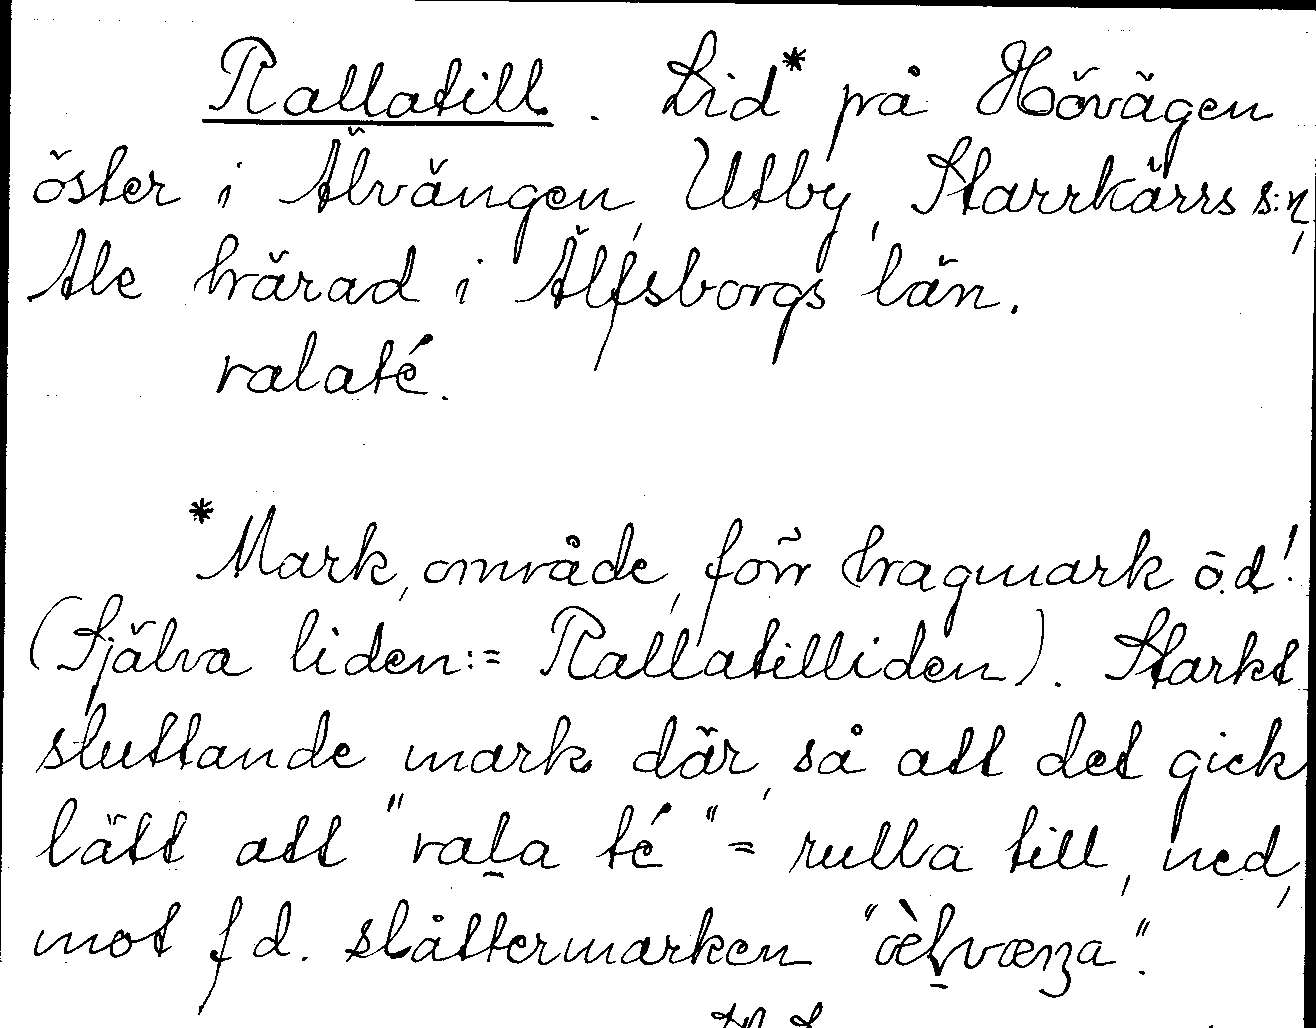 Rallatill. Lid* på Hövägen
öster i Älvängen, Utby, Starrkärrs s:n,
Ale härad i Älfsborgs län.
ralaté.
*Mark, område, förr hagmark o.d!
(Själva liden:= Rallatilliden). Starkt
sluttande mark där, så att det gick
lätt att "rala té" = rulla till, ned,
mot f d. slåttermarken